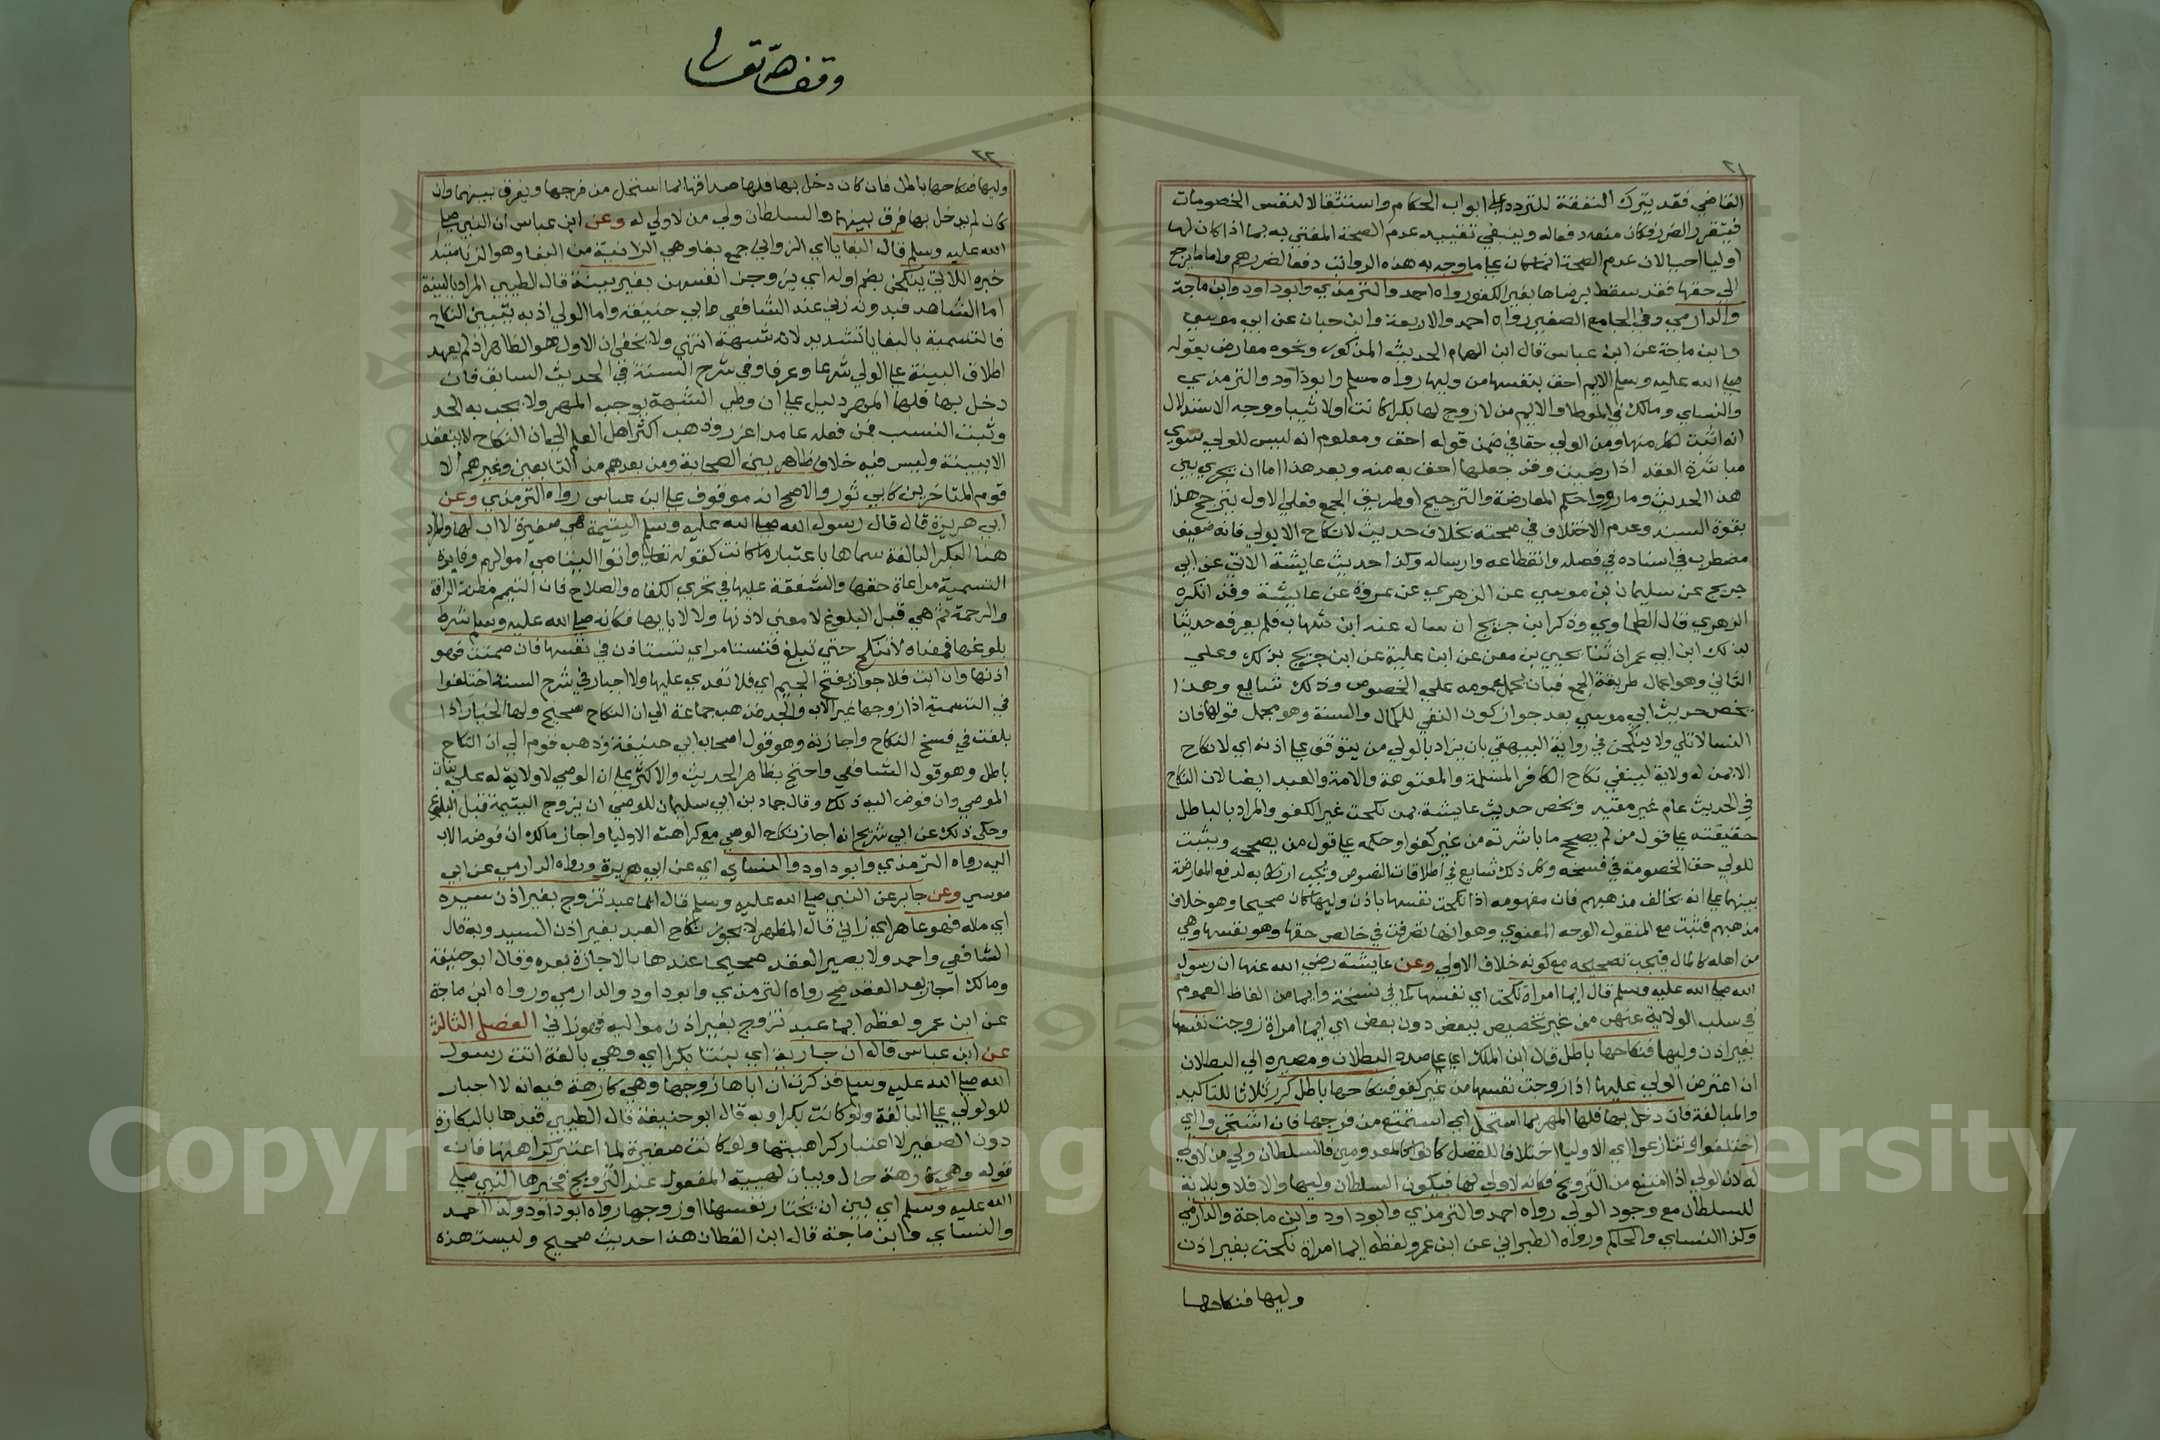 ٢١
القاضي فقد يترك النفقة للتردد على ابواب الحكام واستثقالا لنفس الخصومات
فيتقرر الضرر فكان منعه دفعا له وينبغي تقييد عدم الصحة المفتى به بما اذا كان لها
اوليا احيا لان عدم الصحة انما كان على ما وجه به هذه الروايت دفعا لضررهم واما ما يرجع
الى حقها فقد سقط برضاها بغير الكفو رواه احمد والترمذي وابو داود وابن ماجة
والدارمي وفي الجامع الصغير رواه احمد والاربعة وابن حبان عن ابي موسى
وابن ماجة عن ابن عباس قال ابن الهمام الحديث المذكور ونحوه معارض بقوله
صلى الله عليه وسلم الايم احق بنفسها من وليها رواه مسلم وابو داود والترمذي
والنساي ومالك في الموطا والايم من لا زوج لها بكرا كانت او لا ثيبا ووجه الاستدلال
انه اثبت لكل منها ومن الولي حقا في ضمن قوله احق ومعلوم انه ليس للولي سوى
مباشرة العقد اذا رضيت وقد جعلها احق به منه وبعد هذا اما ان يجري بين
هذا الحديث وما رووا حكم المعارضة والترجيح او طريق الجمع فعلى الاول يترجح هذا
بقوة السند وعدم الاختلاف في صحته بخلاف حديث لا نكاح الا بولي فانه ضعيف
مضطرب في اسناده في فصله وانقطاعه وارساله وكذا حديث عايشة الاتي عن ابي
جريج عن سليمان بن موسى عن الزهري عن عروة عن عايشة وقد انكره
الزهري قال الطحاوي وذكر ابن جريج ان سال عنه ابن شهاب فلم يعرفه حدثنا
بذلك ابن ابي عمران ثنا يحيى بن معين عن ابن علية عن ابن جريج بذلك وعلى
الثاني وهو اعمال طريقة الجمع فبان يحمل عمومه على الخصوص وذلك شايع وهذا
يخص حديث ابي موسى بعد جواز كون النفي للكمال والسنة وهو محمل قولها فان
النسا لا تلي ولا ينكحن في رواية البيهقي بان يراد بالولي من يتوقف على اذنه اي لا نكاح
الا بمن له ولاية لينفي نكاح الكافر المسلمة والمعتوهة والامة والعبد ايضا لان النكاح
في الحديث عام غير مقيد ويخص حديث عايشة بمن نكحت غير الكفو والمراد بالباطل
حقيقته على قول من لم يصحح ما باشرته من غير كفو او حكمه على قول من يصححه ويثبت
للولي حق الخصومة في فسخه وكل ذلك شايع في اطلاقات النصوص ويجب ارتكابه لدفع المعارضة
بينهما على انه يخالف مذهبهم فان مفهومه اذا نكحت نفسها باذن وليها كان صحيحا وهو خلاف
مذهبهم فثبت مع المنقول الوجه المعنوي وهو انها تصرفت في خالص حقها وهو نفسها وهي
من اهله كالمال فيجب تصحيحه مع كونه خلاف الاولى وعن عايشة رضي الله عنها ان رسول
الله صلى الله عليه وسلم قال ايما امراة نكحت اي نفسها كما في نسخة وايما من الفاظ العموم
في سلب الولاية عنهن من غير تخصيص ببعض دون بعض اي ايما امراة زوجت نفسها
بغير اذن وليها فنكاحها باطل قال ابن الملك اي على صدد البطلان ومصيره الى البطلان
ان اعترض الولي عليها اذا زوجت نفسها من غير كفو فنكاحها باطل كرر ثلاثا للتاكيد
والمبالغة فان دخل بها فلها المهر بما استحل اي استمتع من فرجها فان اشتجروا اي
اختلفوا او تنازعوا اي الاوليا اختلافا للفصل كانوا كالمعدومين فالسلطان ولي من لا ولي
له لان الولي اذا امتنع من التزويج فكانه لا ولي لها فيكون السلطان وليها والا فلا ولاية
للسلطان مع وجود الولي رواه احمد والترمذي وابو داود وابن ماجة والدارمي
وكذا النساي والحاكم ورواه الطبراني عن ابن عمرو لفظه ايما امراة نكحت بغير اذن
وليها فنكاحها
وقف لله تعالى
٢٢
وليها فنكاحها باطل فان كان دخل بها فلها صداقها بما استحل من فرجها ويفرق بينهما وان
كان لم يدخل بها فرق بينهما والسلطان ولي من لا ولي له وعن ابن عباس ان النبي صلى
الله عليه وسلم قال البغايا اي الزواني جمع بغا وهي الزانية من البغا وهو الزنا مبتدا
خبره اللاتي ينكحن بضم اوله اي يزوجن انفسهن بغير بينة قال الطيبي المراد بالبينة
اما الشاهد فبدونه زنى عند الشافعي وابي حنيفة واما الولي اذ به يتبين النكاح
فالتسمية بالبغايا تشديد لانه شبهة انتهى ولا يخفى ان الاول هو الظاهر اذ لم يعهد
اطلاق البينة على الولي شرعا وعرفا وفي شرح السنة في الحديث السابق فان
دخل بها فلها المهر دليل على ان وطى الشبهة يوجب المهر ولا يجب به الحد
ويثبت النسب فمن فعله عامدا عزر وذهب اكثر اهل العلم الى ان النكاح لا ينعقد
الا ببينة وليس فيه خلاف ظاهر بين الصحابة ومن بعدهم من التابعين وغيرهم الا
قوم المتاخرين كابي ثور والاصح انه موقوف على ابن عباس رواه الترمذي وعن
ابي هريرة قال قال رسول الله صلى الله عليه وسلم اليتيمة هي صغيرة لا اب لها والمراد
هنا البكر البالغة سماها باعتبار ما كانت كقوله تعالى واتوا اليتامى اموالهم وفايدة
التسمية مراعاة حقها والشفقة عليها في تحري الكفاه والصلاح فان اليتيم مظنة الرافة
والرحمة ثم هي قبل البلوغ لا معنى لاذنها ولا لابايها فكانه صلى الله عليه وسلم شرط
بلوغها فمعناه لا تنكح حتى تبلغ فتستامر اي تستاذن في نفسها فان صمتت فهو
اذنها وان ابت فلا جواز بفتح الجيم اي فلا تعدي عليها ولا اجبار في شرح السنة اختلفوا
في اليتيمة اذا زوجها غير الاب والجد فذهب جماعة الى ان النكاح صحيح ولها الخيار اذا
بلغت في فسخ النكاح واجازته وهو قول اصحاب ابي حنيفة وذهب قوم الى ان النكاح
باطل وهو قول الشافعي واحتج بظاهر الحديث والاكثر على ان الوصي لا ولاية له على بنات
الموصي وان فوض اليه ذلك وقال حماد بن ابي سليمان للوصي ان يزوج اليتيمة قبل البلوغ
وحكى ذلك عن ابي شريح انه اجاز نكاح الوصي مع كراهة الاوليا واجاز مالك ان فوضه الاب
اليه رواه الترمذي وابو داود والنساي اي عن ابي هريرة ورواه الدارمي عن ابي
موسى وعن جابر عن النبي صلى الله عليه وسلم قال ايما عبد تزوج بغير اذن سيده
اي مالكه فهو عاهر اي زاني قال المظهر لا يجوز نكاح العبد بغير اذن السيد وبه قال
الشافعي واحمد ولا يصير العقد صحيحا عندها بالاجازة بعده وقال ابو حنيفة
ومالك اجاز بعد العقد صح رواه الترمذي وابو داود والدارمي ورواه ابن ماجة
عن ابن عمر ولفظه ايما عبد تزوج بغير اذن مواليه فهو زاني الفصل الثالث
عن ابن عباس قال ان جارية اي بنتا بكرا اي وهي بالغة اتت رسول
الله صلى الله عليه وسلم فذكرت ان اباها زوجها وهي كارهة فيه انه لا اجبار
للولي على البالغة ولو كانت بكرا وبه قال ابو حنيفة قال الطيبي قيدها بالبكارة
دون الصغير لا اعتبار كراهيتها ولو كانت صغيرة لما اعتبر كراهتها فان
قوله وهي كارهة حال وبيان لهيية المفعول عند التزويج فخيرها النبي صلى
الله عليه وسلم اي بين ان تختار نفسها او زوجها رواه ابو داود وكذا احمد
والنساي وابن ماجة قال ابن القطان هذا حديث صحيح وليست هذه
Copyright © King Saud University
1957